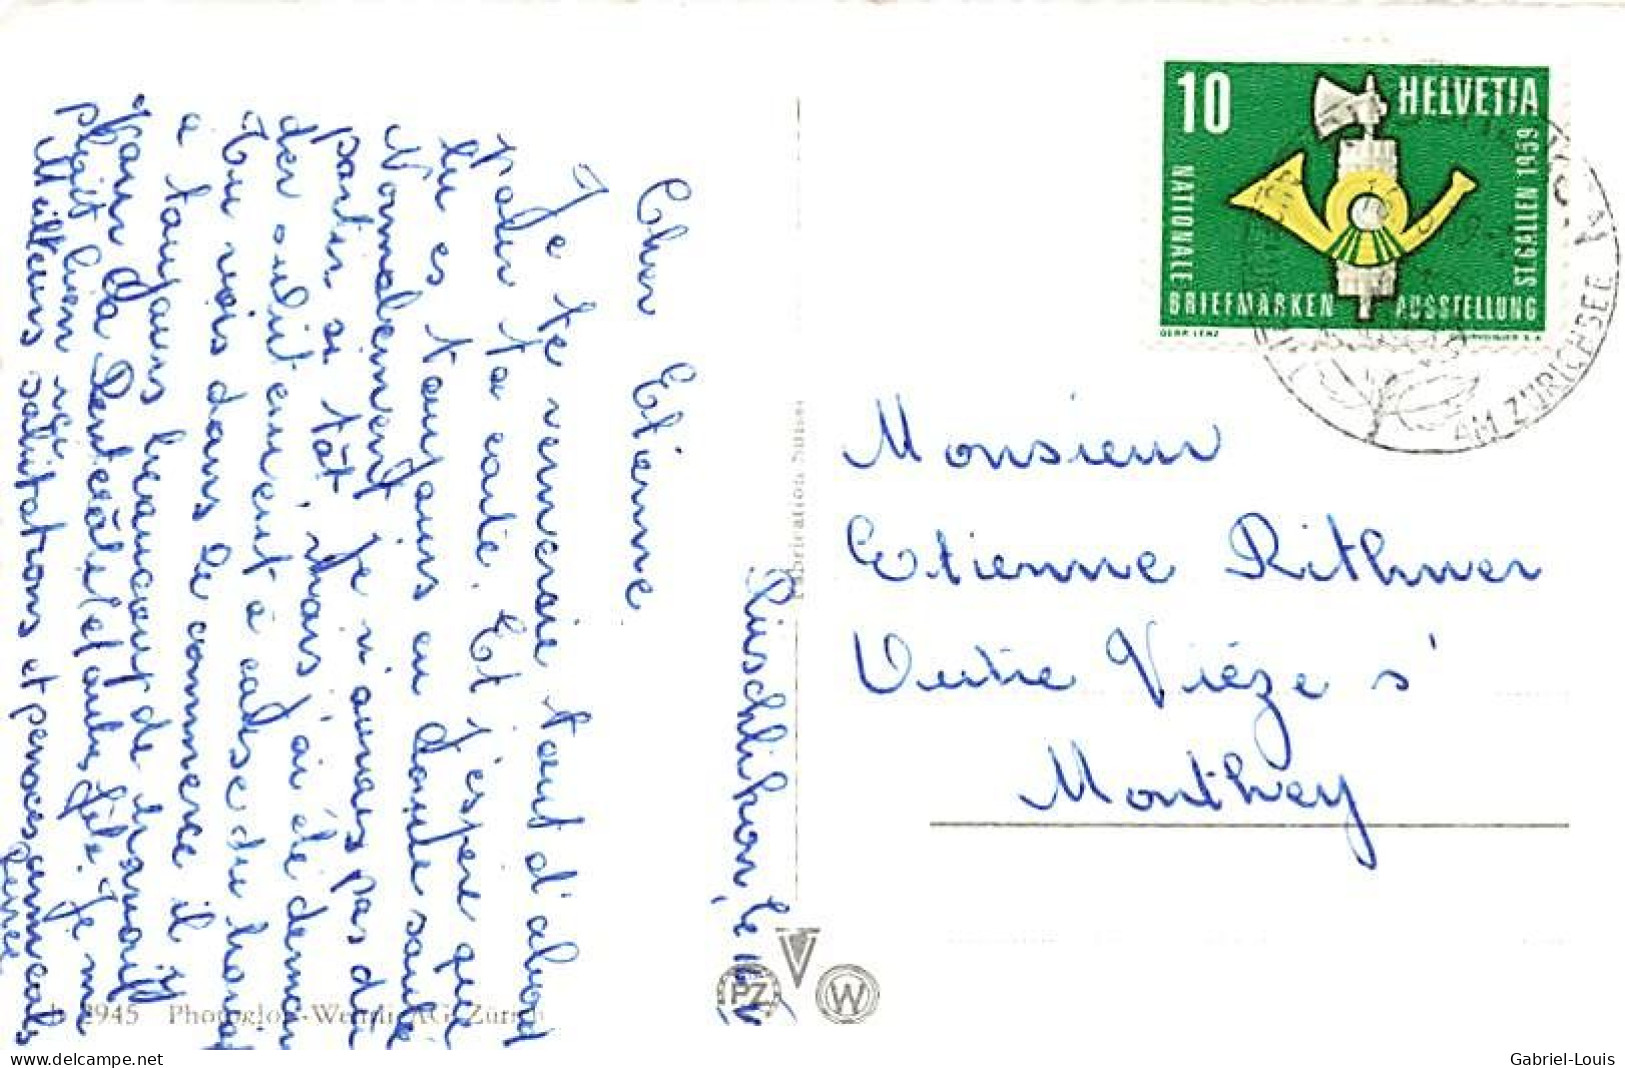 10 HELVETIA
NATIONALE
BRIEFMARKEN AUSSTELLUNG
ST.GALLEN 1959
AM ZÜRICHSEE
Rüschlikon, le
Cher Etienne
Je te remercie tout d'abord
pour ta carte. Et j'espère que
tu es toujours en bonne santé
Normalement je n'aurais pas dû
partir si tôt, mais j'ai été
subitement à cause du
Tu vois dans le commerce il y
a toujours beaucoup de
Pour la Pentecôte et autre fête. Je me
plait bien ici
Meilleurs salutations et pensées amicales
Monsieur
Etienne Rithner
Outre Vièze s'
Monthey
Fabrication Suisse
2945 Photoglob-Wehrli AG, Zürich
PZ
W
delcampe.net
Gabriel-Louis